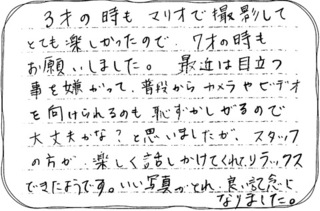 3才の時も マリオで撮影して
とても楽しかったので、7才の時も
お願いしました。 最近は目立つ
事を嫌がって、普段からカメラやビデオ
を向けられるのも恥ずかしがるので
大丈夫かな？と思いましたが、スタッフ
の方が、楽しく話しかけてくれて、リラックス
できたようです。いい写真がとれ、良い記念に
なりました。